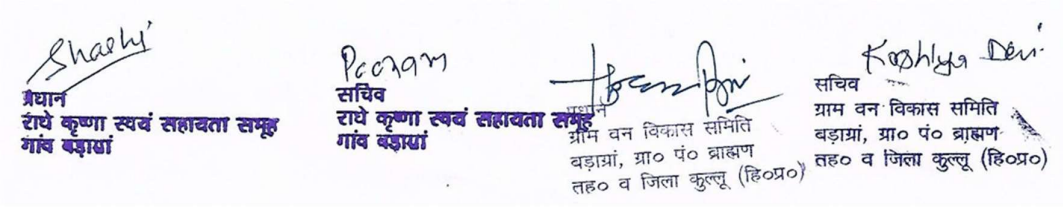 Shashi
प्रधान
राधे कृष्णा स्वयं सहायता समूह
गांव बड़ाग्रां
Poonam
सचिव
राधे कृष्णा स्वयं सहायता समूह
गांव बड़ाग्रां
प्रधान
ग्राम वन विकास समिति
बड़ाग्रां, ग्रा० पं० ब्राह्मण
तह० व जिला कुल्लू (हि०प्र०)
Koshlya Devi
सचिव
ग्राम वन विकास समिति
बड़ाग्रां, ग्रा० पं० ब्राह्मण
तह० व जिला कुल्लू (हि०प्र०)